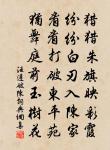 猎猎朱旗映彩霞
纷纷白刃入陈家
看看打破东平苑
犹舞庭前玉树花
汪遵破陈词典网集